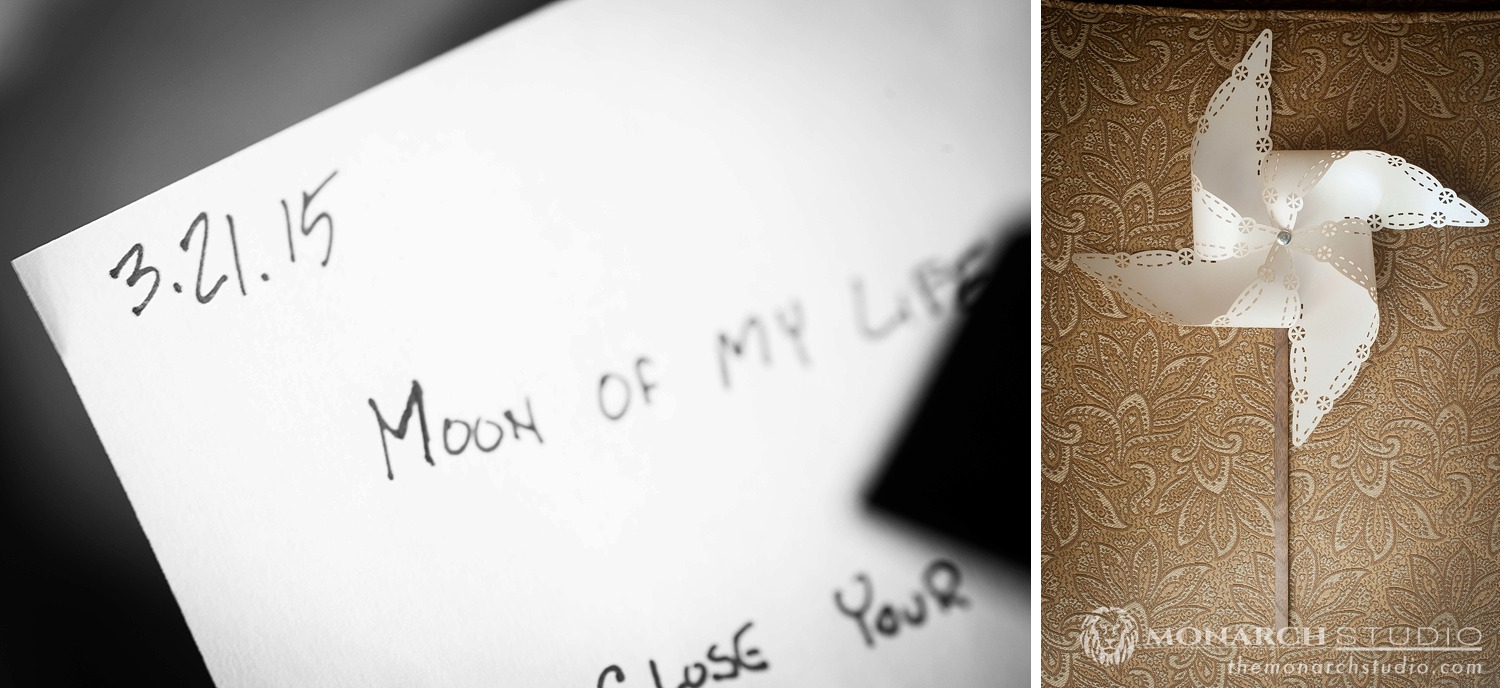 3.21.15
Moon OF MY LIFE
CLOSE YOUR
MONARCH STUDIO
themonarchstudio.com